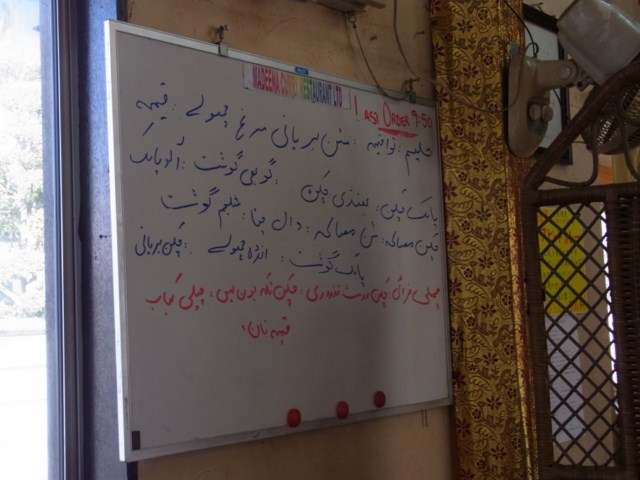 MADEENA CURRY RESTAURANT LTD
LAST ORDER 9-50
حلیم: نواقیمہ: مٹن بریانی مرغ چھولے: قیمہ
پالک چکن: بھنڈی چکن گوبھی گوشت: آلو پالک
چکن مصالحہ: مٹن مصالحہ: دال چنا: شلجم گوشت
پالک گوشت: انڈہ چھولے: چکن بریانی
مچھلی فرائی، چکن روسٹ تندوری، چکن تکہ بون لیس، چپلی کباب
قیمہ نان،